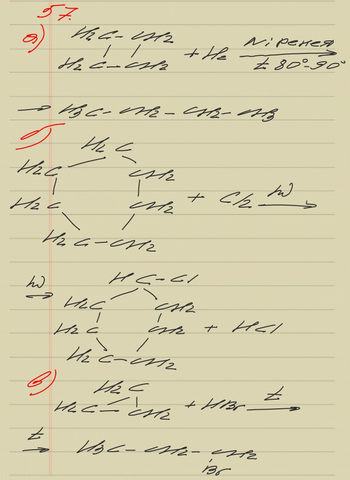 57.
а) H2C - CH2
H2C - CH2 + H2 Ni Ренея
t 80°-90°
→ H3C - CH2 - CH2 - CH3
б) H2C
H2C CH2
H2C CH2 + Cl2 hν →
H2C - CH2
hν → HC - Cl
H2C CH2
H2C CH2 + HCl
H2C - CH2
в) H2C
H2C - CH2 + HBr t →
t → H3C - CH2 - CH2
Br